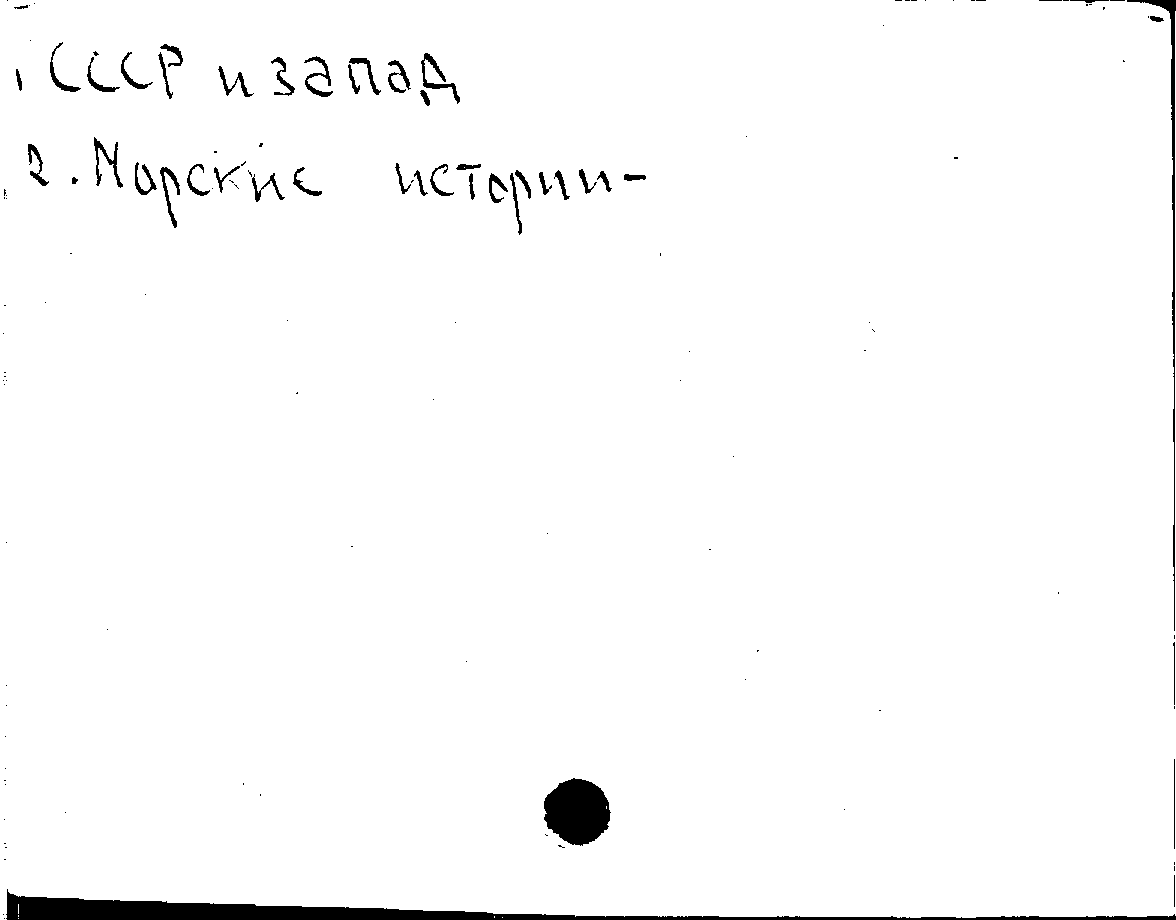 1 СССР и запад
2. Морские истории-